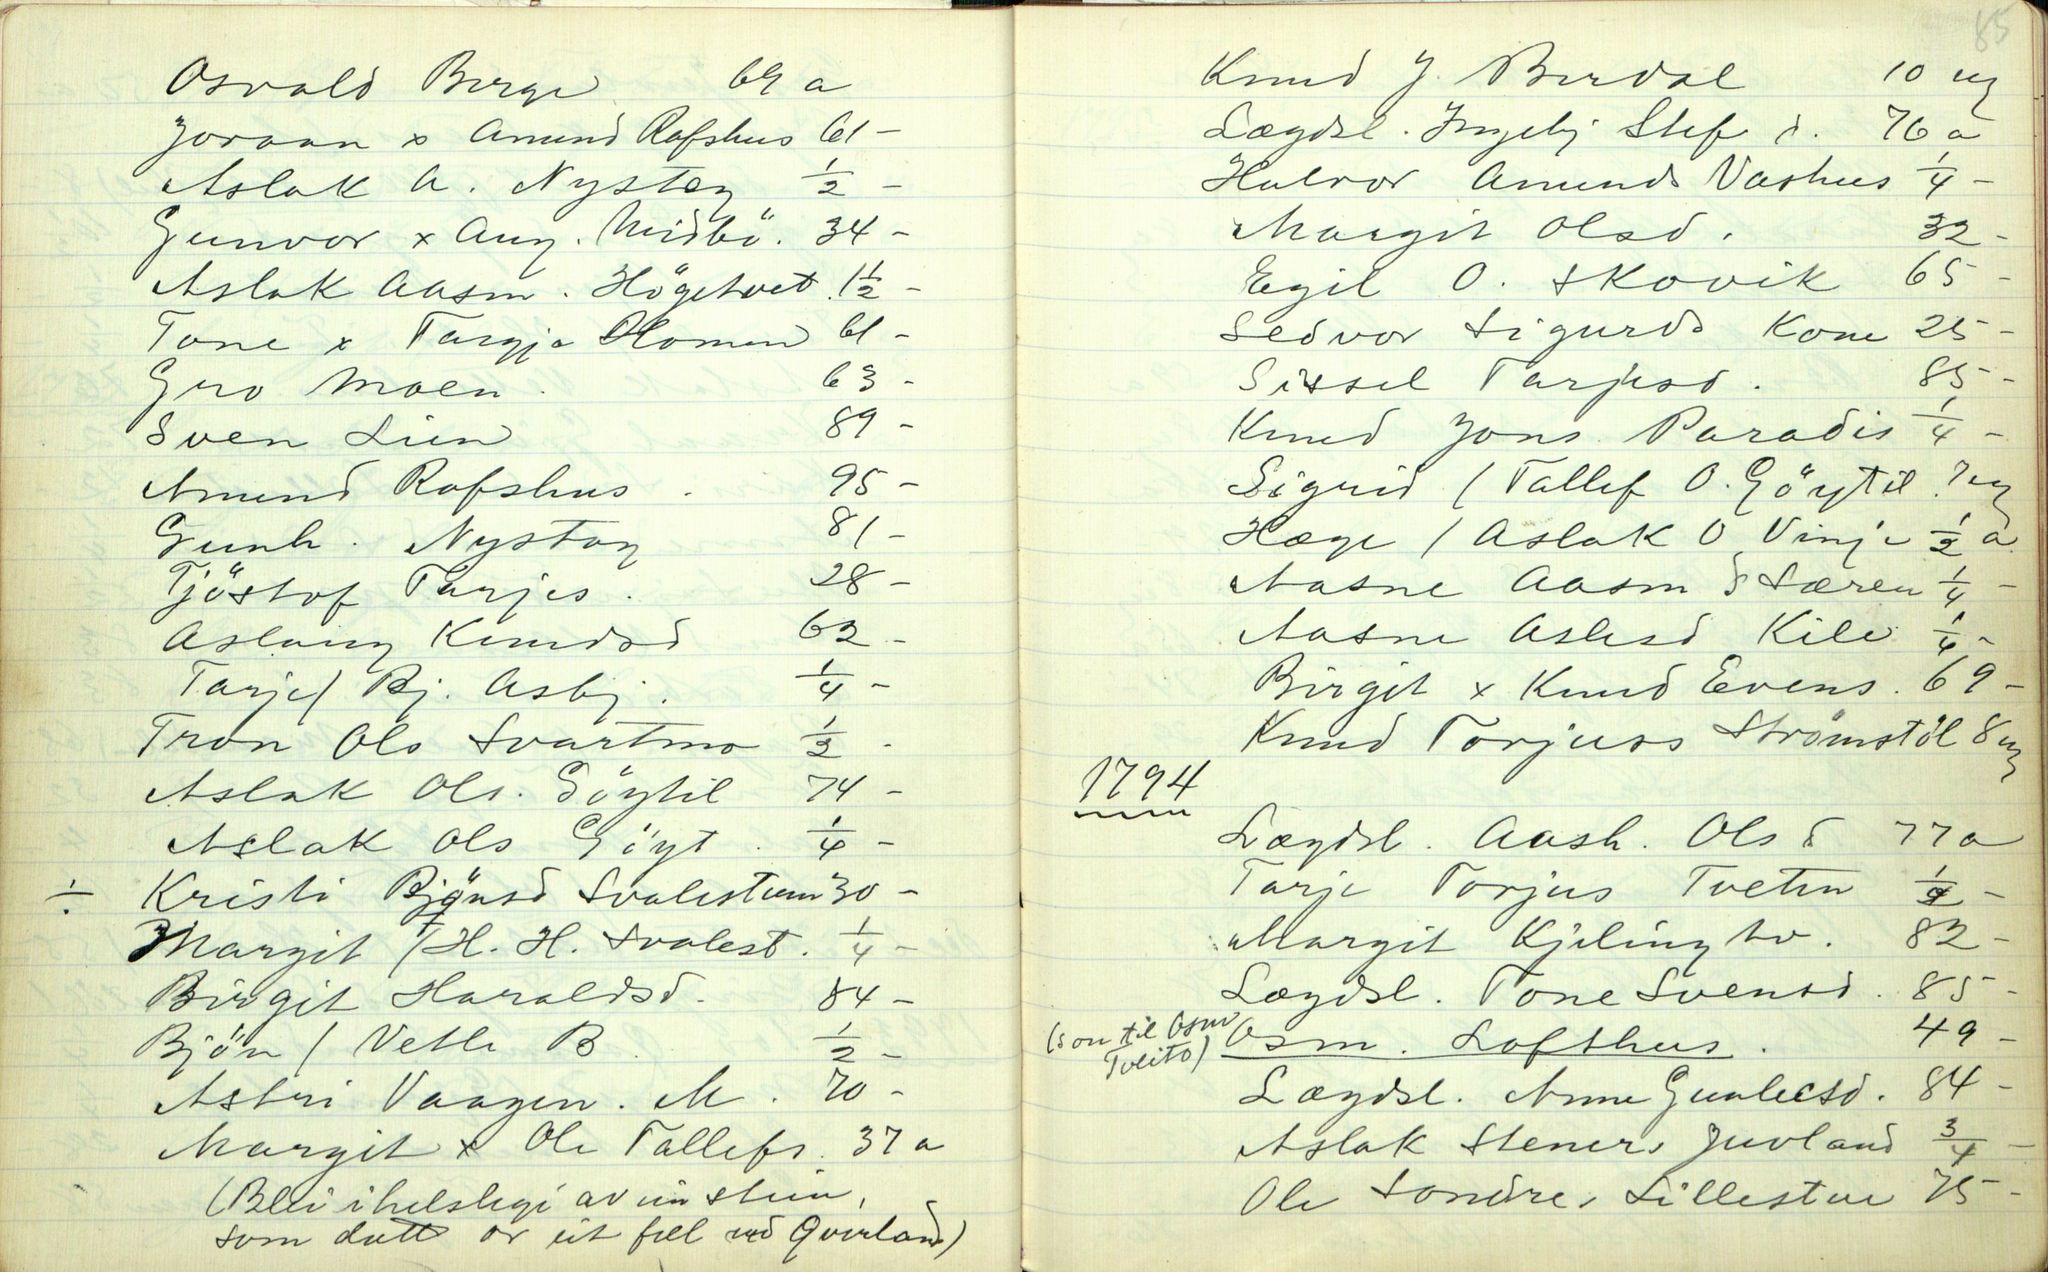 Osvald Berge 69 a
Joraan x Amund Rafshus 61 -
Aslak A. Nystøy 1/2 -
Gunvor x Aug. Midbö. 34 -
Aslak Aasm. Högetveit. 1 1/2 -
Tone x Targje Homen 61 -
Gro Moen. 63 -
Sven Lien 89 -
Amund Rafshus. 95 -
Gunh. Nystøy 81 -
Tjöstof Tarjes. 28 -
Aslaug Knudsd 62 -
Tarje / Bj. Asbj. 1/4 -
Tron Ols Svartmo 1/2 -
Aslak Ols. Göytil 74 -
Aslak Ols Göyt. 1/4 -
÷ Kristi Bjönsd Svalestuen 30 -
Margit / H. H. Svalest. 1/4 -
Birgit Haraldsd. 84 -
Bjön / Vetle B. 1/2 -
Astri Vaagen. M. 70 -
Margit x Ole Tallefs. 37 a
(Blei ihelslegi av ein stein,
som datt or eit fjell ved Qvirland)
85
Knud J. Berdal 10 ug
Lægdsl. Ingebj Stefsd. 76 a
Halvor Amunds Vashus 1/4 -
Margit Olsd. 32 -
Egil O. Skovik 65 -
Ledvor Sigurds Kone 25 -
Sissel Tarjesd. 85 -
Knud Jons. Paradis 1/4 -
Sigrid / Tallef O. Göytil. 7 ug
Hæge / Aslak O Vinje 1/2 a
Aasne Aasm S Stæren 1/4 -
Aasne Aslesd Kile 1/4 -
Birgit x Knud Evens. 69 -
Knud Torjuss Strömstöl 8 ug
1794
Lægdsl. Aash. Olsd 77 a
Tarje Torjus Tveten 1/2 -
Margit Kjelingtv. 82 -
Lægdsl. Tone Svensd. 85 -
(son til Osm Tveito) Osm. Lofthus. 49 -
Lægdsl. Anne Gunleksd. 84 -
Aslak Steners Juvland 3/4 -
Ole Sondres Lillestue 75 -